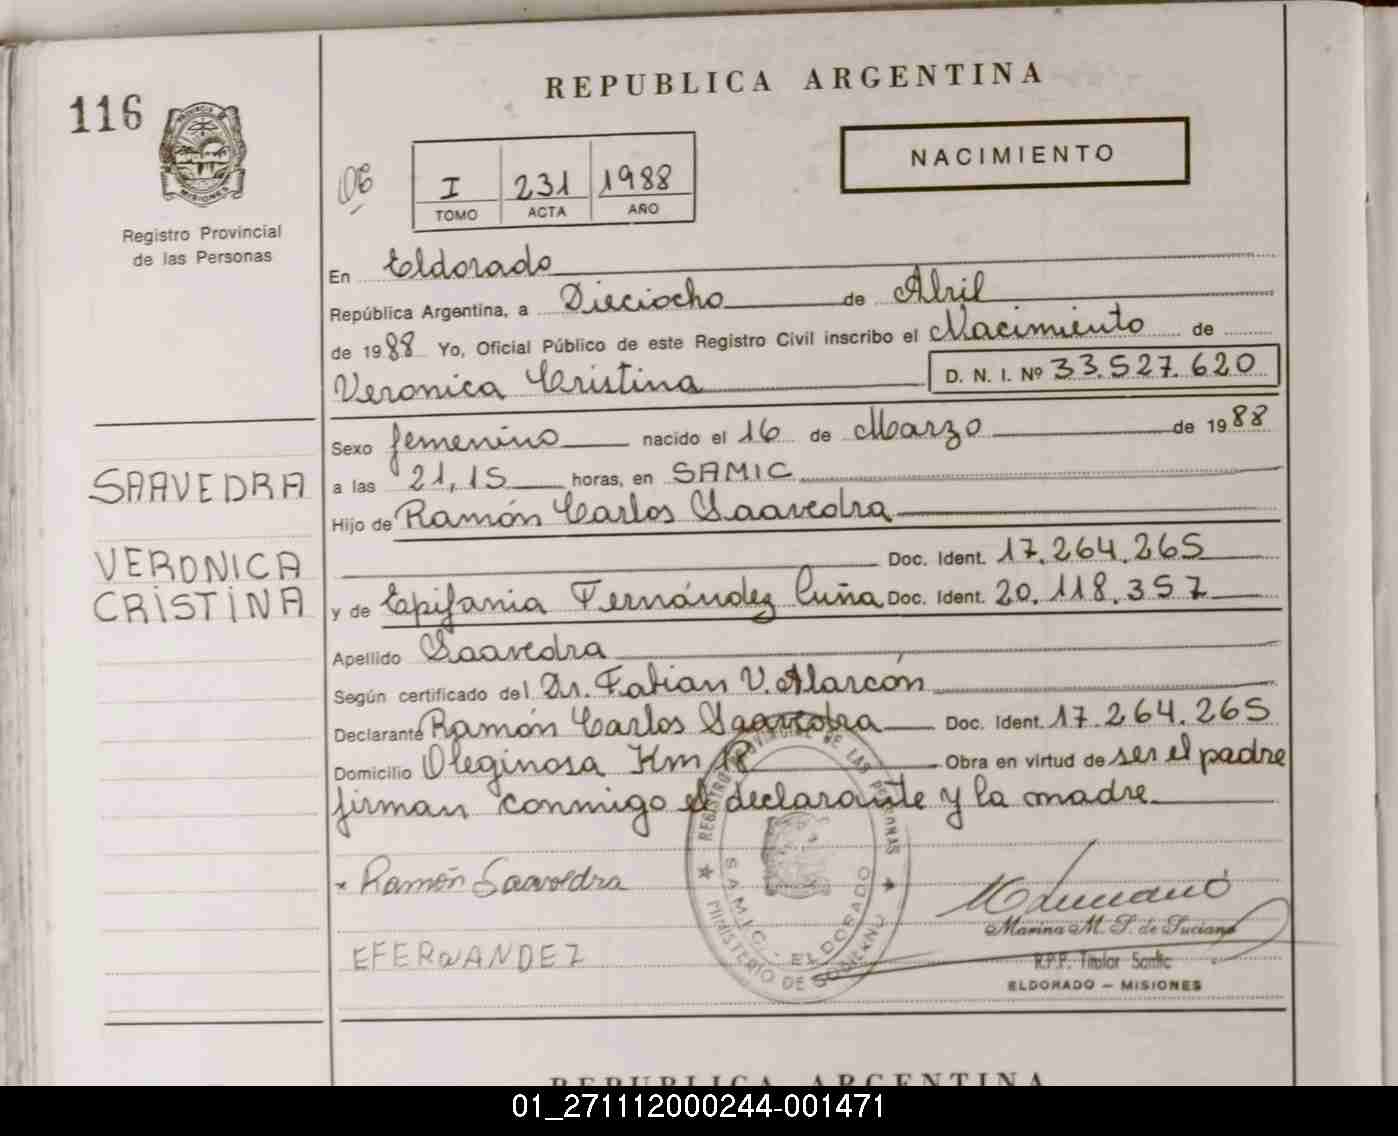 REPUBLICA ARGENTINA
116
PROVINCIA DE
MISIONES
Registro Provincial
de las Personas
NACIMIENTO
06
I 231 1988
TOMO ACTA AÑO
En Eldorado
República Argentina, a Dieciocho de Abril
de 1988 Yo, Oficial Público de este Registro Civil inscribo el Nacimiento de
Veronica Cristina D. N. I. Nº 33.527.620
Sexo femenino nacido el 16 de Marzo de 1988
SAAVEDRA
a las 21,15 horas, en SAMIC
Hijo de Ramón Carlos Saavedra
VERONICA
CRISTINA
Doc. Ident. 17.264.265
y de Epifania Fernández Cuña Doc. Ident. 20.118.357
Apellido Saavedra
Según certificado del Dr. Fabian V. Alarcón
Declarante Ramón Carlos Saavedra Doc. Ident. 17.264.265
Domicilio Oleginosa Km 18 Obra en virtud de ser el padre
firman conmigo el declarante y la madre
REGISTRO PROVINCIAL DE LAS PERSONAS
SAMIC. - ELDORADO
MINISTERIO DE GOBIERNO
Ramón Saavedra
EFERNANDEZ
Marina M. S. de Luciano
R.P.P. Titular Samic
ELDORADO - MISIONES
REPUBLICA ARGENTINA
01_271112000244-001471